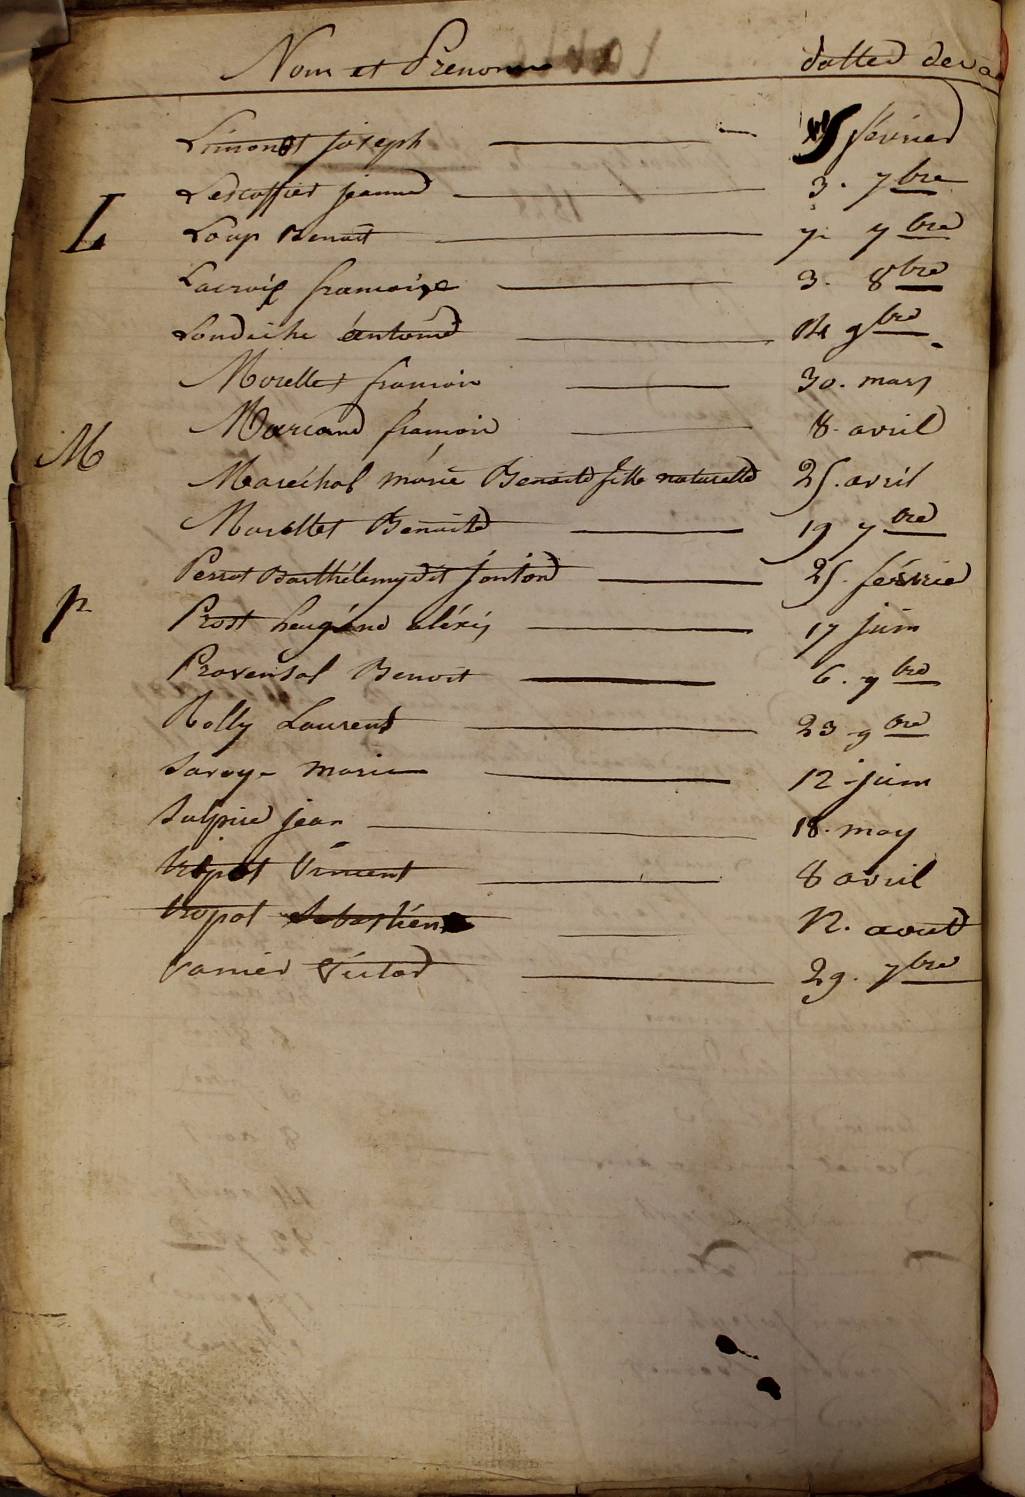 Nom et Prenom dattes des a
Limonot joseph 15 février
Lescoffier jeanne 3. 7bre
L
Loup Benoit 7. 7bre
Lacroix francoise 3. 8bre
Londeche antoine 14 9bre
Morellet francois 30. mars
Marcand francois 8. avril
M
Maréchal marie Benoite fille naturelle 25. avril
Morellet Benoite 19 7bre
Perrot Barthélemy dit 25. février
P
Prost heugéne aléxis 17 juin
Provensal Benoit 6. 9bre
Rolly Laurent 23 9bre
Savoye marie 12 juin
Sulpice jean 18. may
Vincent 8 avril
Sebastien 12. août
Victor 29. 7bre